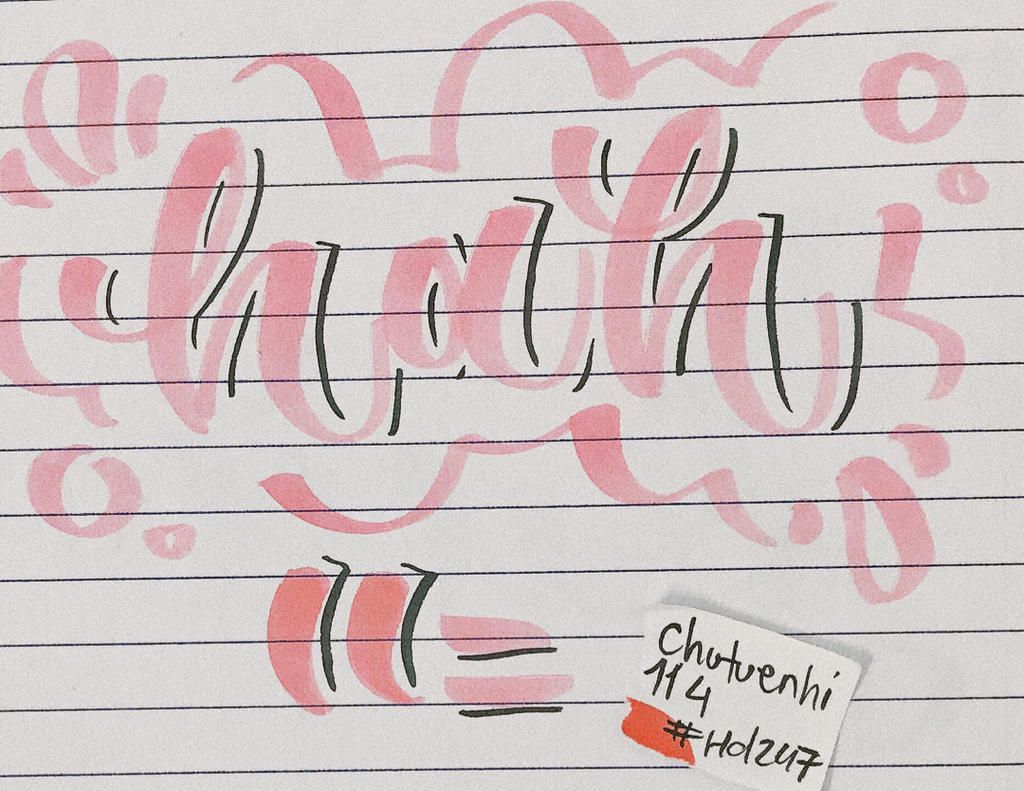 hah
((=
Chutuenhi
114
#Hd247